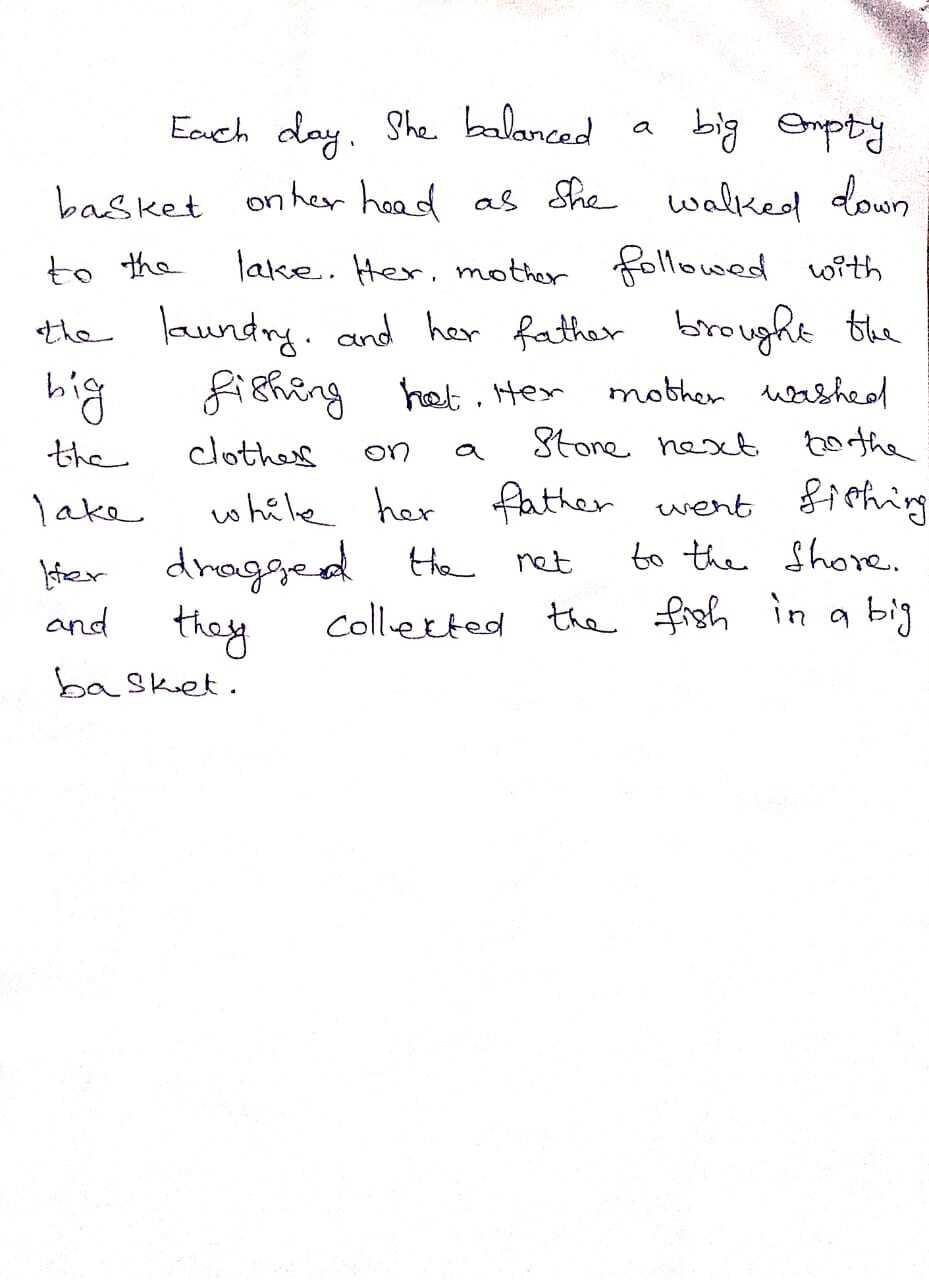 Each day. She balanced a big empty
basket on her head as She walked down
to the lake. Her. mother followed with
the laundry. and her father brought the
big fishing net. Her mother washed
the clothes on a Stone next to the
lake while her father went fishing
Her dragged the net to the Shore.
and they collected the fish in a big
basket.